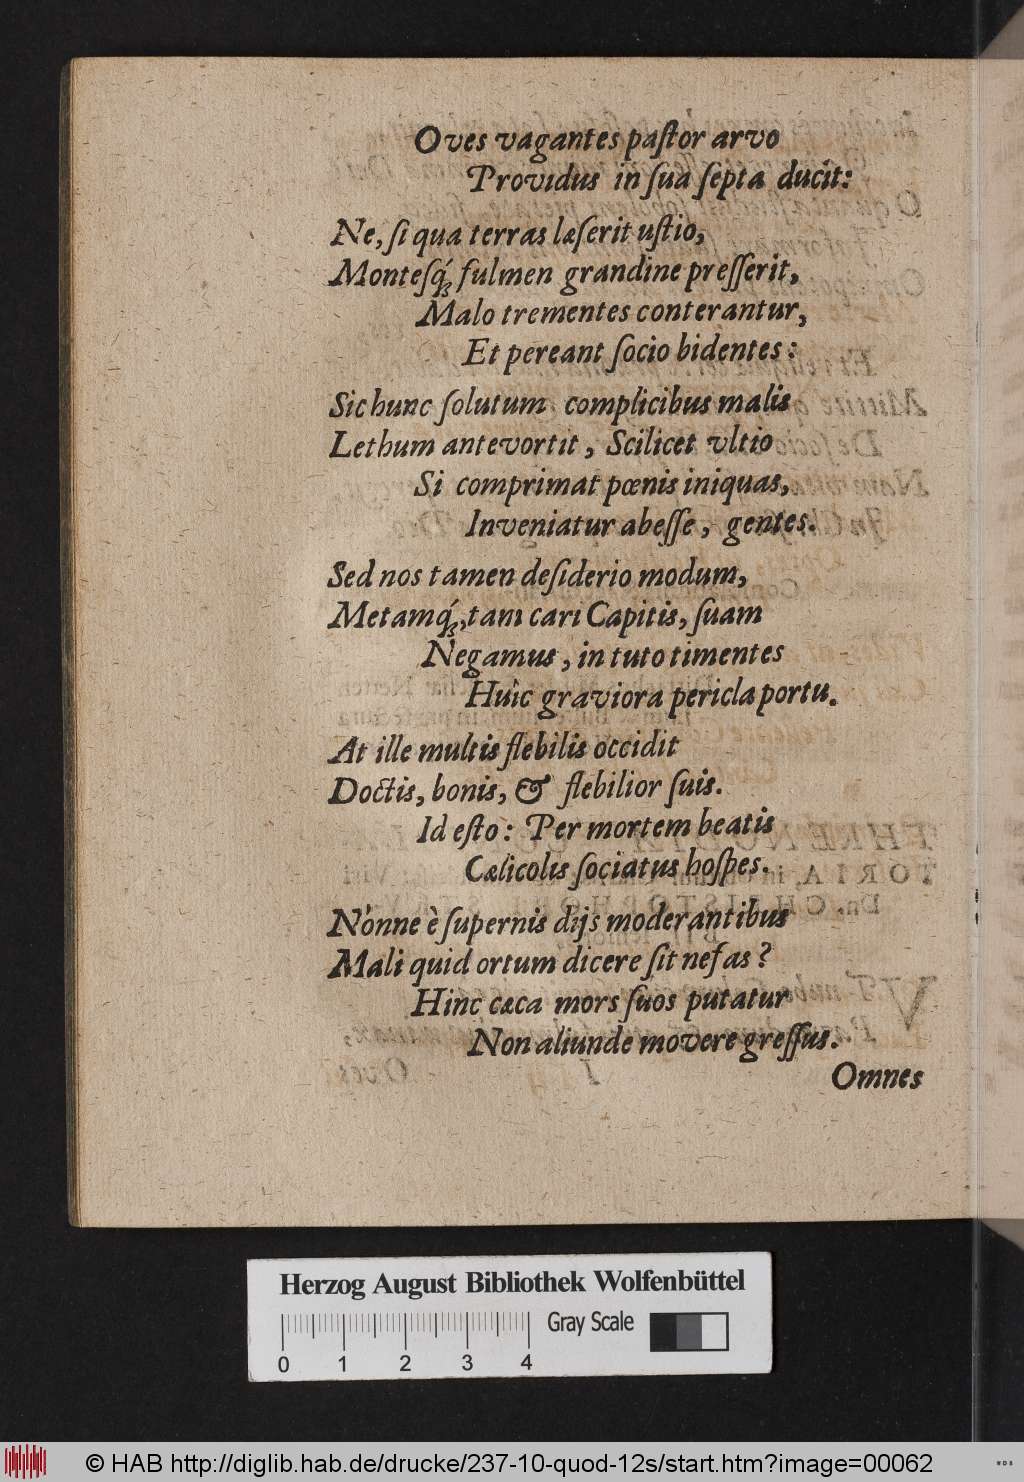 Oves vagantes paſtor arvo
Providus in ſua ſepta ducit:
Ne, ſi qua terras læſerit uſtio,
Monteſq́; fulmen grandine preſſerit,
Malo trementes conterantur,
Et pereant ſocio bidentes:
Sic hunc ſolutum complicibus malis
Lethum antevortit, Scilicet vltio
Si comprimat pœnis iniquas,
Inveniatur abeſſe, gentes.
Sed nos tamen deſiderio modum,
Metamq́;, tam cari Capitis, ſuam
Negamus, in tuto timentes
Huîc graviora pericla portu.
At ille multis flebilis occidit
Doctis, bonis, & flebilior ſuis.
Id eſto: Per mortem beatis
Cælicolis ſociatus hoſpes.
Nónne è ſupernis dijs moderantibus
Mali quid ortum dicere ſit nefas?
Hinc cæca mors ſuos putatur
Non aliunde movere greſſus.
Omnes
Herzog August Bibliothek Wolfenbüttel
Gray Scale
0 1 2 3 4
© HAB http://diglib.hab.de/drucke/237-10-quod-12s/start.htm?image=00062